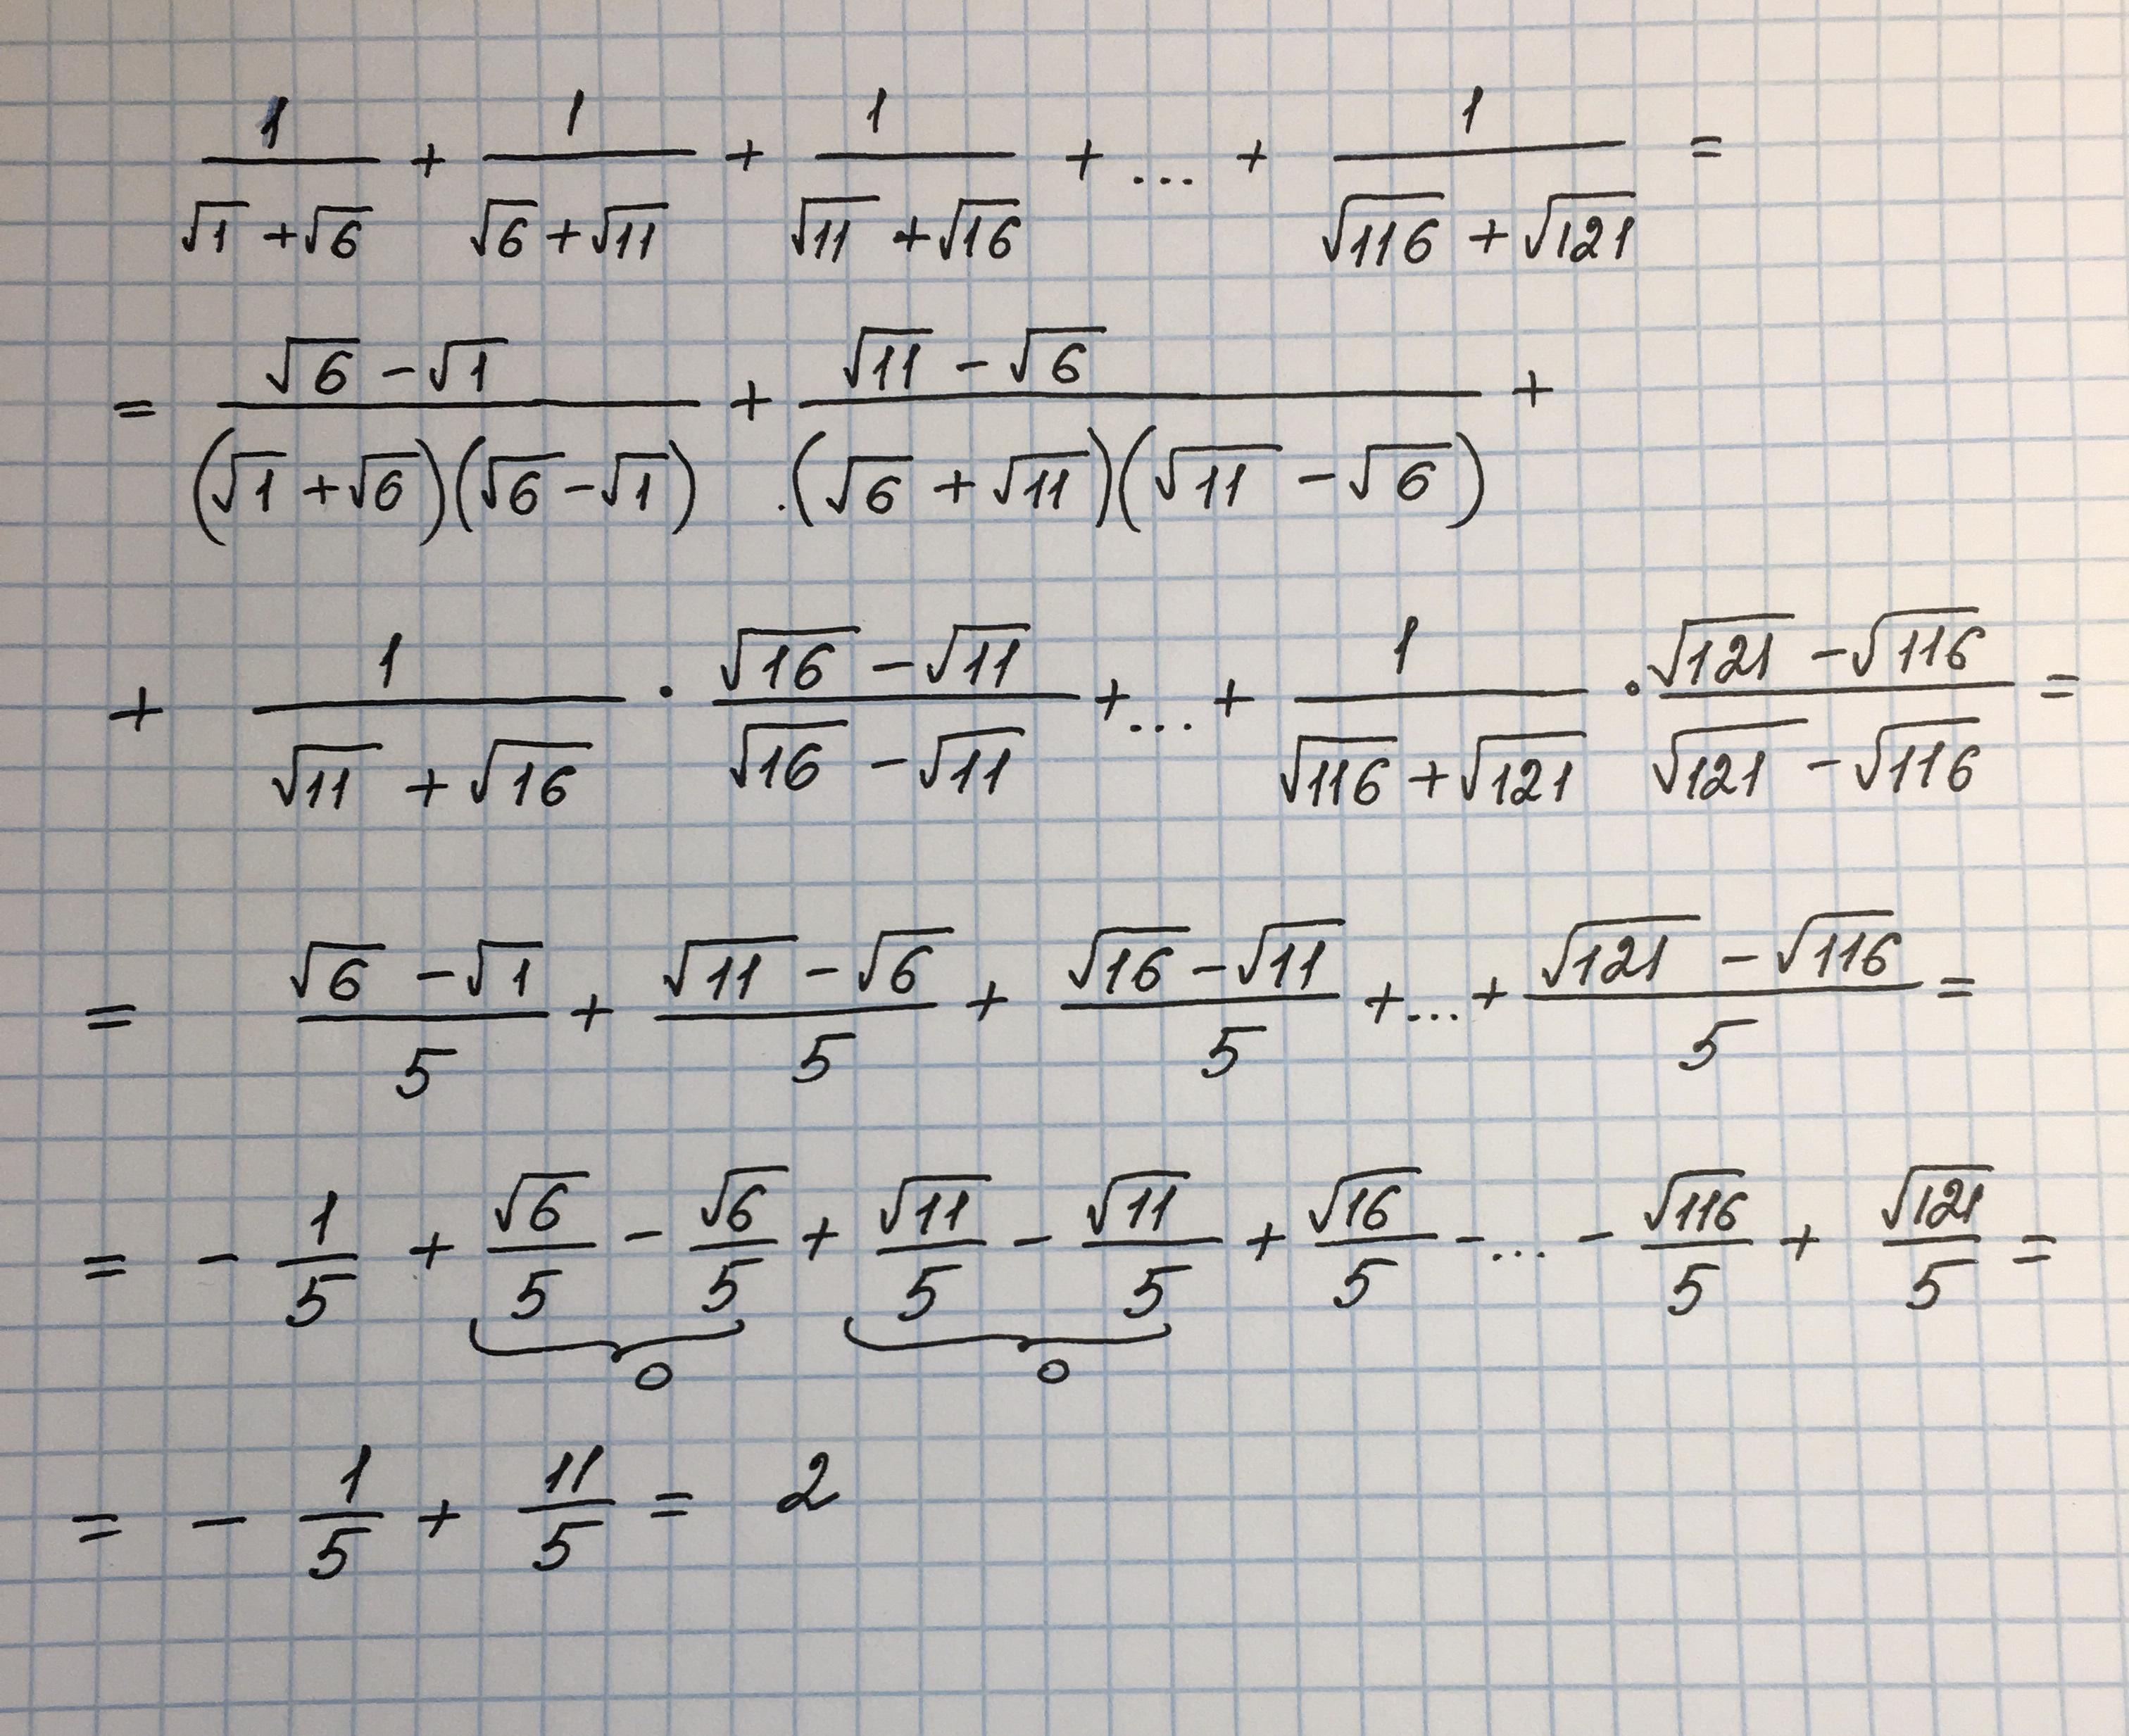 1/(√1 + √6) + 1/(√6 + √11) + 1/(√11 + √16) + ... + 1/(√116 + √121) =
= (√6 - √1)/((√1 + √6)(√6 - √1)) + (√11 - √6)/((√6 + √11)(√11 - √6)) +
+ 1/(√11 + √16) · (√16 - √11)/(√16 - √11) + ... + 1/(√116 + √121) · (√121 - √116)/(√121 - √116) =
= (√6 - √1)/5 + (√11 - √6)/5 + (√16 - √11)/5 + ... + (√121 - √116)/5 =
= - 1/5 + √6/5 - √6/5 + √11/5 - √11/5 + √16/5 - ... - √116/5 + √121/5 =
0 0
= - 1/5 + 11/5 = 2